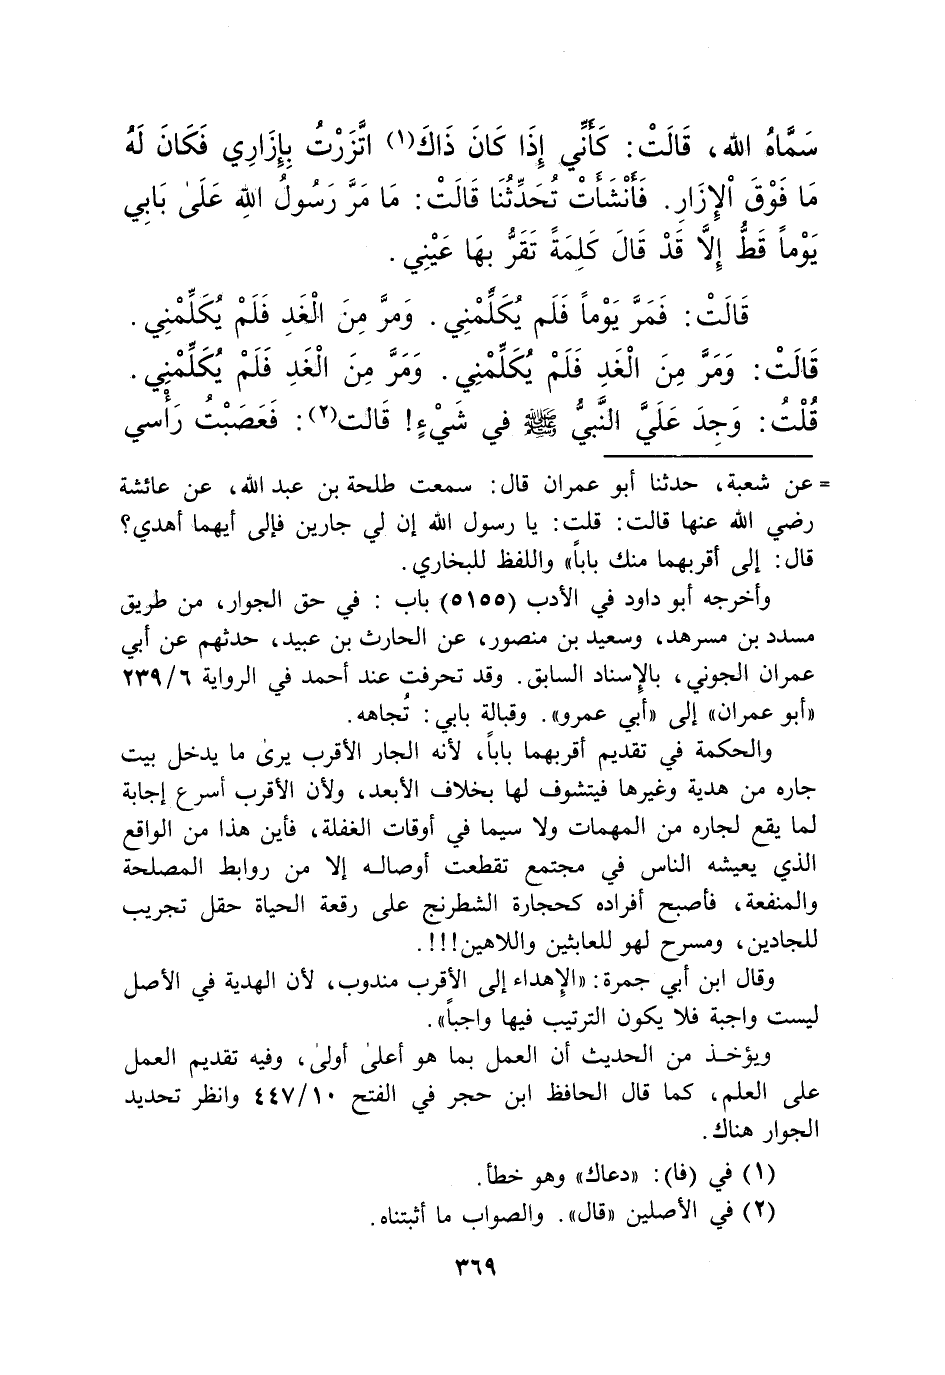 سَمَّاهُ الله، قَالَتْ: كَأَنِّي إِذَا كَانَ ذَاكَ(١) اتَّزَرْتُ بِإِزَارِي فَكَانَ لَهُ
مَا فَوْقَ الْإِزَارِ. فَأَنْشَأَتْ تُحَدِّثُنَا قَالَتْ: مَا مَرَّ رَسُولُ اللهِ عَلَىٰ بَابِي
يَوْماً قَطُّ إِلَّا قَدْ قَالَ كَلِمَةً تَقَرُّ بِهَا عَيْنِي.
قَالَتْ: فَمَرَّ يَوْماً فَلَم يُكَلِّمْنِي. وَمرَّ مِنَ الْغَدِ فَلَمْ يُكَلِّمْنِي.
قَالَتْ: وَمَرَّ مِنَ الْغَدِ فَلَمْ يُكَلِّمْنِي. وَمَرَّ مِنَ الْغَدِ فَلَمْ يُكَلِّمْنِي.
قُلْتُ: وَجِدَ عَلَيَّ النَّبِيُّ ﷺ في شَيْءٍ! قَالت(٢): فَعَصَبْتُ رَأْسي
= عن شعبة، حدثنا أبو عمران قال: سمعت طلحة بن عبد الله، عن عائشة
رضي الله عنها قالت: قلت: يا رسول الله إن لي جارين فإلى أيهما أهدي؟
قال: إلى أقربهما منك باباً» واللفظ للبخاري.
وأخرجه أبو داود في الأدب (٥١٥٥) باب: في حق الجوار، من طريق
مسدد بن مسرهد، وسعيد بن منصور، عن الحارث بن عبيد، حدثهم عن أبي
عمران الجوني، بالإسناد السابق. وقد تحرفت عند أحمد في الرواية ٢٣٩/٦
«أبو عمران» إلى «أبي عمرو». وقبالة بابي: تُجاهه.
والحكمة في تقديم أقربهما باباً، لأنه الجار الأقرب يرىٰ ما يدخل بيت
جاره من هدية وغيرها فيتشوف لها بخلاف الأبعد، ولأن الأقرب أسرع إجابة
لما يقع لجاره من المهمات ولا سيما في أوقات الغفلة، فأين هذا من الواقع
الذي يعيشه الناس في مجتمع تقطعت أوصاله إلا من روابط المصلحة
والمنفعة، فأصبح أفراده كحجارة الشطرنج على رقعة الحياة حقل تجريب
للجادين، ومسرح لهو للعابثين واللاهين!!!.
وقال ابن أبي جمرة: «الإهداء إلى الأقرب مندوب، لأن الهدية في الأصل
ليست واجبة فلا يكون الترتيب فيها واجباً».
ويؤخذ من الحديث أن العمل بما هو أعلىٰ أولىٰ، وفيه تقديم العمل
على العلم، كما قال الحافظ ابن حجر في الفتح ٤٤٧/١٠ وانظر تحديد
الجوار هناك.
(١) في (فا): «دعاك» وهو خطأ.
(٢) في الأصلين «قال». والصواب ما أثبتناه.
٣٦٩